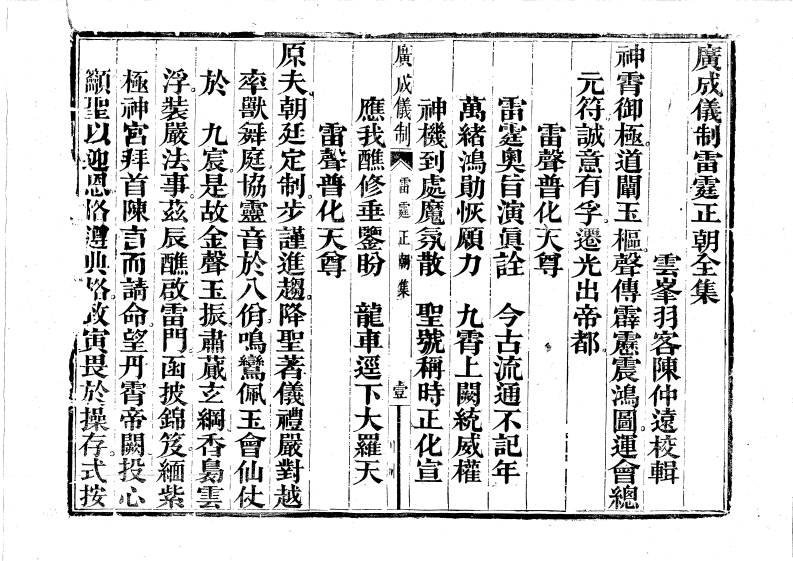 廣成儀制雷霆正朝全集
雲峯羽客陳仲遠校輯
神霄御極。道闡玉樞。聲傳霹靂震鴻圖。運會總
元符誠意有孚。遷光出帝都。
雷聲普化天尊
雷霆奧旨演眞詮　今古流通不記年
萬緒鴻勛恢願力　九霄上闕統威權
神機到處魔氛散　聖號稱時正化宣
廣成儀制　雷霆正朝集　壹
應我醮修垂鑒盼　龍車逕下大羅天
雷聲普化天尊
原夫朝廷定制步謹進趨。降聖著儀禮嚴對越
率獸舞庭協靈音於八佾鳴鸞佩玉會仙仗
於　九宸是故金聲玉振肅蕆玄綱香裊雲
浮。裝嚴法事。茲辰醮啟雷門函披錦笈緬紫
極神宮拜首陳言而請命望丹霄帝闕投心
顓聖以迎恩恪遵典格敬寅畏於操存。式按